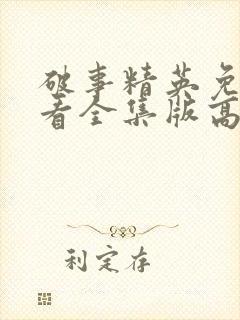 破事精英免
看全集版高
利定存